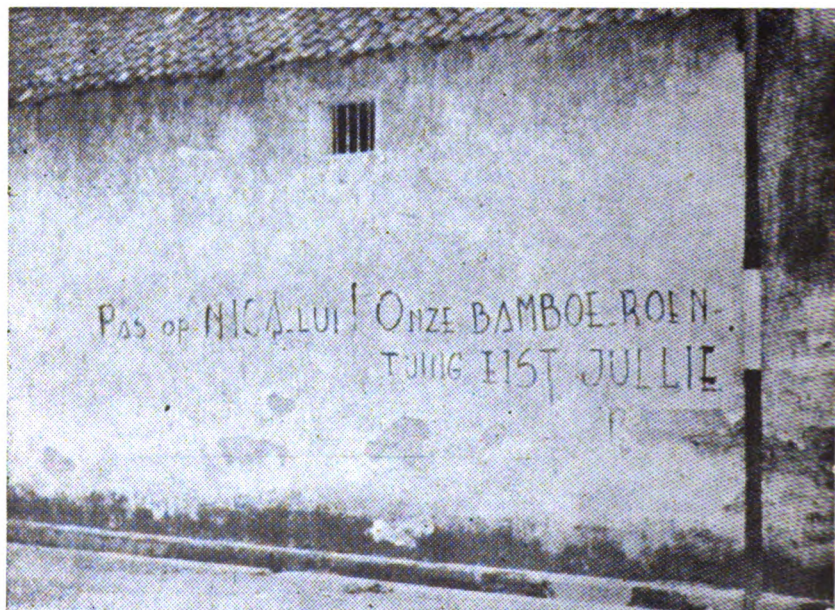 Pas op NICA-LUI! ONZE BAMBOE-ROEN-
TUING EIST JULLIE